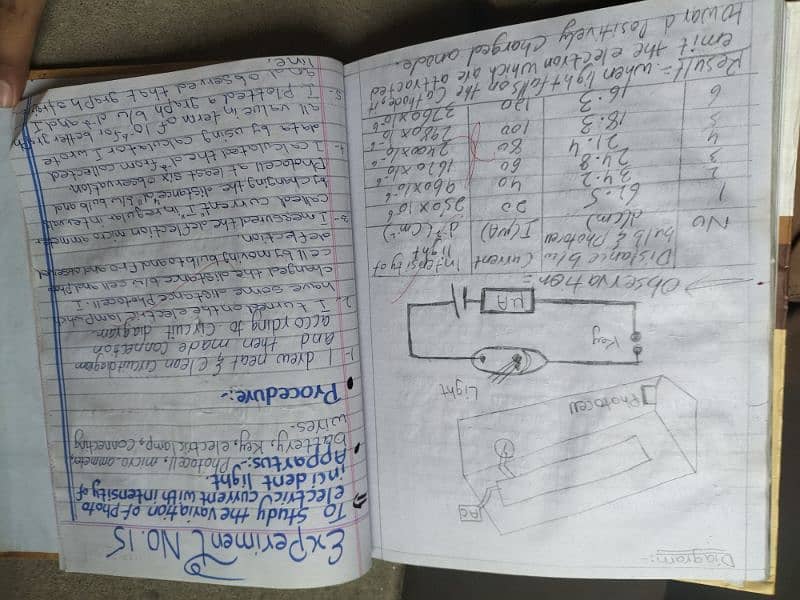 Experiment No.15
To study the variation of photo
electric current with intensity of
incident light.
Appartus:- Photocell, micro-ammeter,
battery, key, electric lamp, connecting
wires.
Procedure:-
1- I drew neat & clean circuit diagram
and then made connection
according to circuit diagram
2- I turned on the electric lamp which
have some distance Photocell. I
changed the distance b/w cell and
cell by moving bulb to and fro and observed
deflection
3- I measured the deflection micro ammeter
called current "I". In regular intervals
by changing the distance 'd' b/w bulb and
Photocell at least at six observation
4- I calculated the d⁻² from collected
data by using calculator I wrote
all value in term of 10⁻⁶ for better graph
5- I Plotted a graph b/w d⁻² and I
and observed that graph straight
line.
Diagram:-
AC
Photocell
Light
Key
μA
Observation =
No
Distance b/w bulb & Photocell d(cm)
Current I(μA)
Intensity of light d⁻²(cm⁻²)
1 61.5 20 250×10⁻⁶
2 34.2 40 960×10⁻⁶
3 24.8 60 1620×10⁻⁶
4 21.4 80 2400×10⁻⁶
5 18.3 100 2980×10⁻⁶
6 16.3 120 3760×10⁻⁶
Result = when light falls on the Cathode, it
emit the electron which are attracted
toward Positively charged anode.